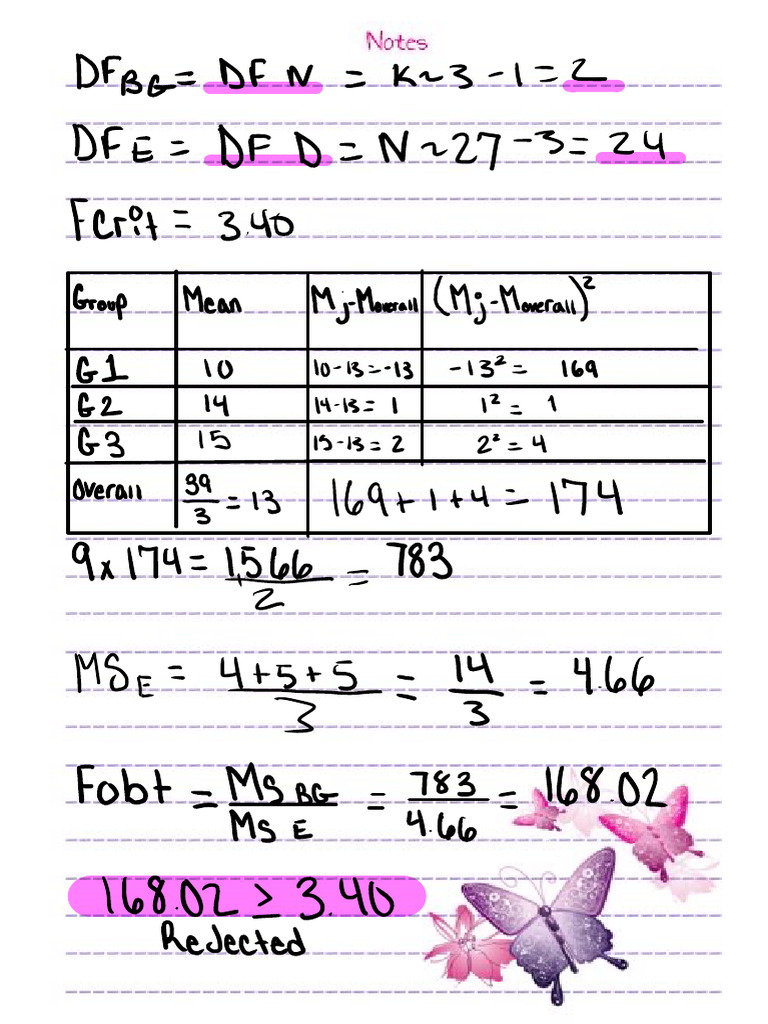 Notes
DF BG = DF N = K~3 - 1 = 2
DF E = DF D = N~27 - 3 = 24
Fcrit = 3.40
Group Mean Mj-Moverall (Mj-Moverall)²
G1 10 10-13=-13 -13² = 169
G2 14 14-13= 1 1² = 1
G3 15 15-13= 2 2² = 4
Overall 39/3 = 13 169 + 1 + 4 = 174
9 x 174 = 1,566/2 = 783
MS E = 4+5+5/3 = 14/3 = 4.66
Fobt = MS BG/MS E = 783/4.66 = 168.02
168.02 ≥ 3.40
Rejected